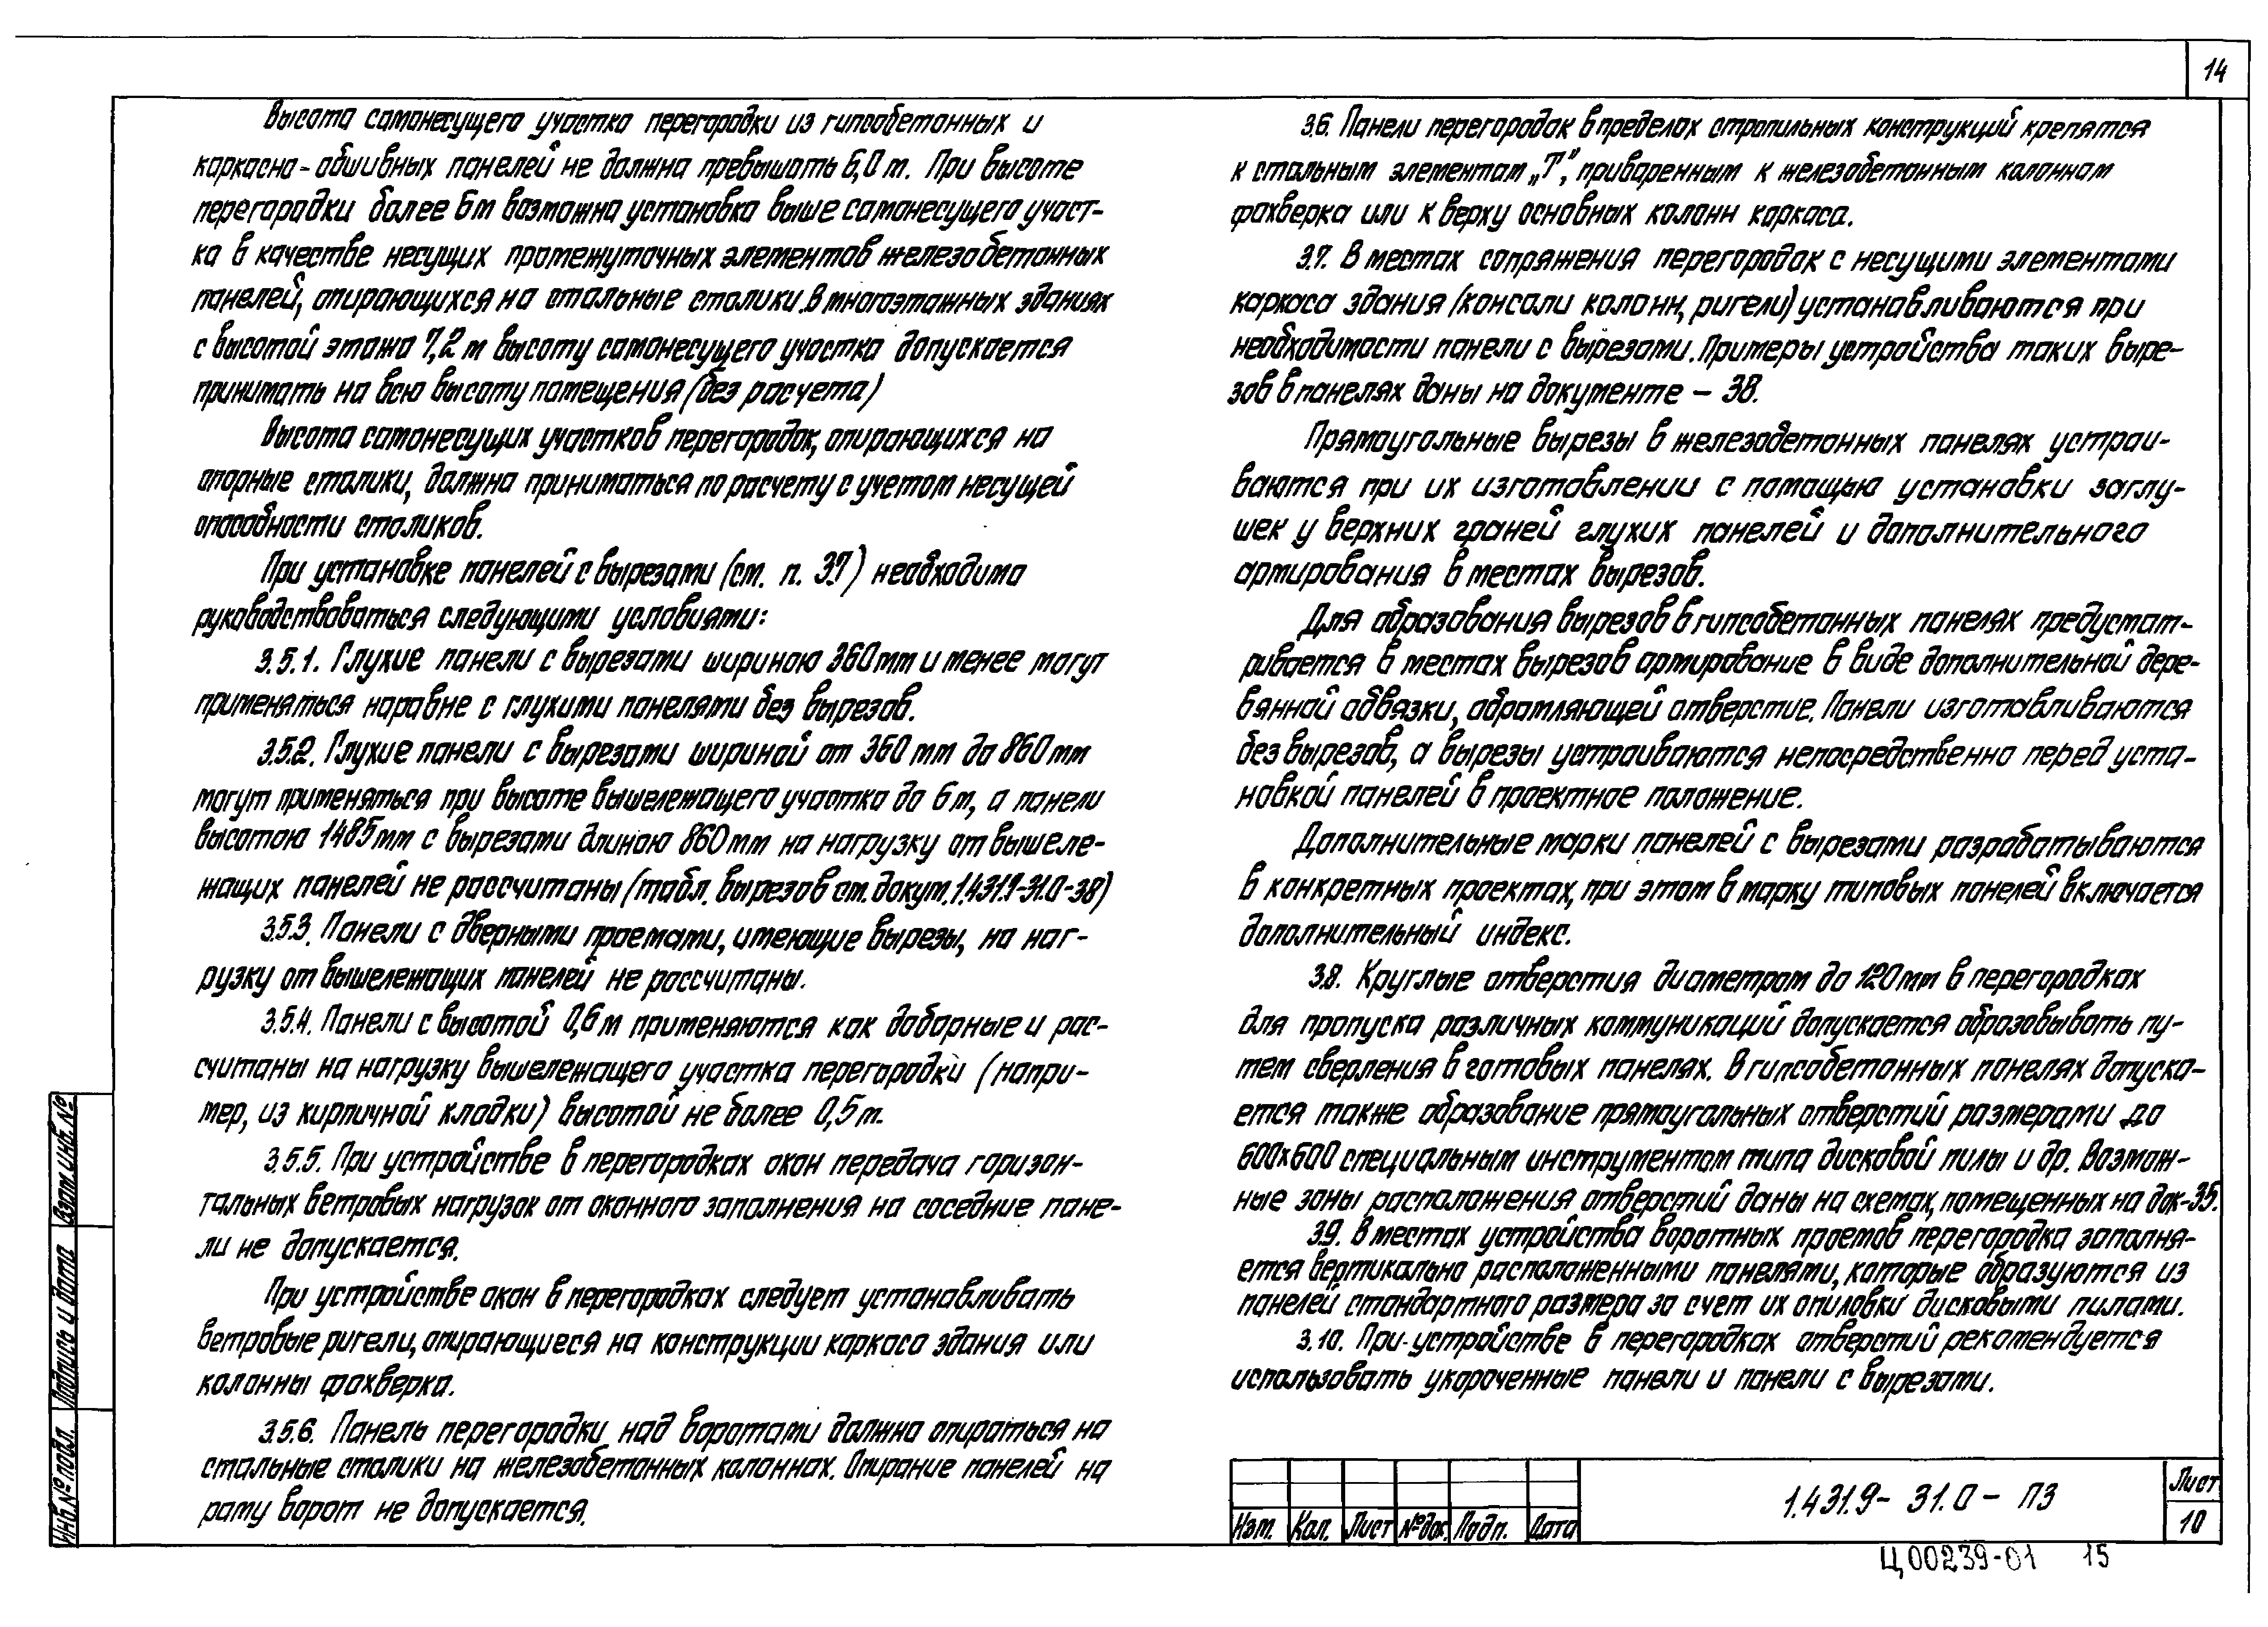 14
Высота самонесущего участка перегородки из гипсобетонных и
каркасно-обшивных панелей не должна превышать 6,0 м. При высоте
перегородки более 6м возможна установка выше самонесущего участ-
ка в качестве несущих промежуточных элементов железобетонных
панелей, опирающихся на стальные столики. В многоэтажных зданиях
с высотой этажа 7,2 м высоту самонесущего участка допускается
принимать на всю высоту помещения (без расчета)
Высота самонесущих участков перегородок, опирающихся на
опорные столики, должна приниматься по расчету с учетом несущей
способности столиков.
При установке панелей с вырезами (см. п. 3.7) необходимо
руководствоваться следующими условиями:
3.5.1. Глухие панели с вырезами шириною 360мм и менее могут
применяться наравне с глухими панелями без вырезов.
3.5.2. Глухие панели с вырезами шириной от 360 мм до 860мм
могут применяться при высоте вышележащего участка до 6м, а панели
высотою 1485мм с вырезами длиною 860мм на нагрузку от вышеле-
жащих панелей не рассчитаны (табл. вырезов см. докум. 1.431.9-31.0-38)
3.5.3. Панели с дверными проемами, имеющие вырезы, на наг-
рузку от вышележащих панелей не рассчитаны.
3.5.4. Панели с высотой 0,6м применяются как доборные и рас-
считаны на нагрузку вышележащего участка перегородки (напри-
мер, из кирпичной кладки) высотой не более 0,5м.
3.5.5. При устройстве в перегородках окон передача горизон-
тальных ветровых нагрузок от оконного заполнения на соседние пане-
ли не допускается.
При устройстве окон в перегородках следует устанавливать
ветровые ригели, опирающиеся на конструкции каркаса здания или
колонны фахверка.
3.5.6. Панель перегородки над воротами должна опираться на
стальные столики на железобетонных колоннах. Опирание панелей на
раму ворот не допускается.
3.6. Панели перегородок в пределах стропильных конструкций крепятся
к стальным элементам „Т", приваренным к железобетонным колоннам
фахверка или к верху основных колонн каркаса.
3.7. В местах сопряжения перегородок с несущими элементами
каркаса здания (консоли колонн, ригели) устанавливаются при
необходимости панели с вырезами. Примеры устройства таких выре-
зов в панелях даны на документе – 38.
Прямоугольные вырезы в железобетонных панелях устраи-
ваются при их изготовлении с помощью установки заглу-
шек у верхних граней глухих панелей и дополнительного
армирования в местах вырезов.
Для образования вырезов в гипсобетонных панелях предусмат-
ривается в местах вырезов армирование в виде дополнительной дере-
вянной обвязки, обрамляющей отверстие. Панели изготавливаются
без вырезов, а вырезы устраиваются непосредственно перед уста-
новкой панелей в проектное положение.
Дополнительные марки панелей с вырезами разрабатываются
в конкретных проектах, при этом в марку типовых панелей включается
дополнительный индекс.
3.8. Круглые отверстия диаметром до 120мм в перегородках
для пропуска различных коммуникаций допускается образовывать пу-
тем сверления в готовых панелях. В гипсобетонных панелях допуска-
ется также образование прямоугольных отверстий размерами до
600х600 специальным инструментом типа дисковой пилы и др. Возмож-
ные зоны расположения отверстий даны на схемах, помещенных на док-35.
3.9. В местах устройства воротных проемов перегородка заполня-
ется вертикально расположенными панелями, которые образуются из
панелей стандартного размера за счет их опиловки дисковыми пилами.
3.10. При устройстве в перегородках отверстий рекомендуется
использовать укороченные панели и панели с вырезами.
Взам.инв.№
Подпись и дата
Инв.№ подл.
Изм. Кол. Лист №док. Подп. Дата
1.431.9- 31.0 - ПЗ
Лист
10
Ц00239-01 15